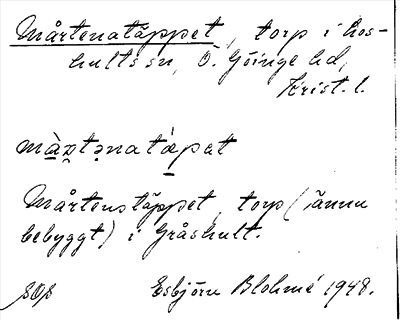 Mårtenatäppet, torp i Hos-
hults sn, Ö. Göinge hd,
Krist. l.
Mårtenstäppet, torp (ännu
bebyggt) i Gråshult.
Esbjörn Blohmé 1948.